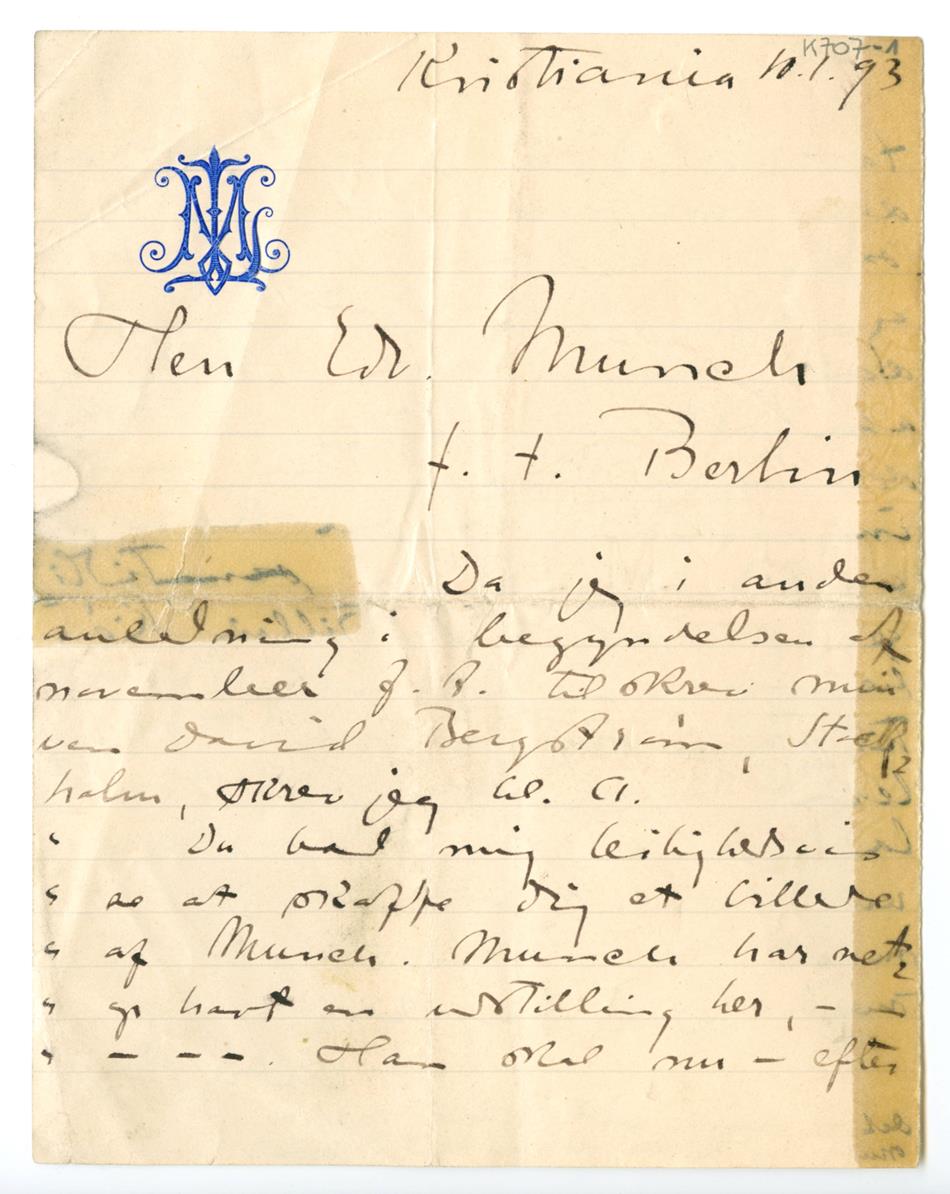 K707-1
Kristiania 10.1.93
Herr Edv. Munch
f. t. Berlin
Da jeg i anden
anledning i begyndelsen af
november f. A. tilskrev min
ven David Bergstrøm, Stock
holm, skrev jeg bl. a.
" Du bad mig leilighedsvis
" se at skaffe dig et billede
" af Munch. Munch har net
" op havt en udstilling her, –
" – – –. Han skal nu – efter